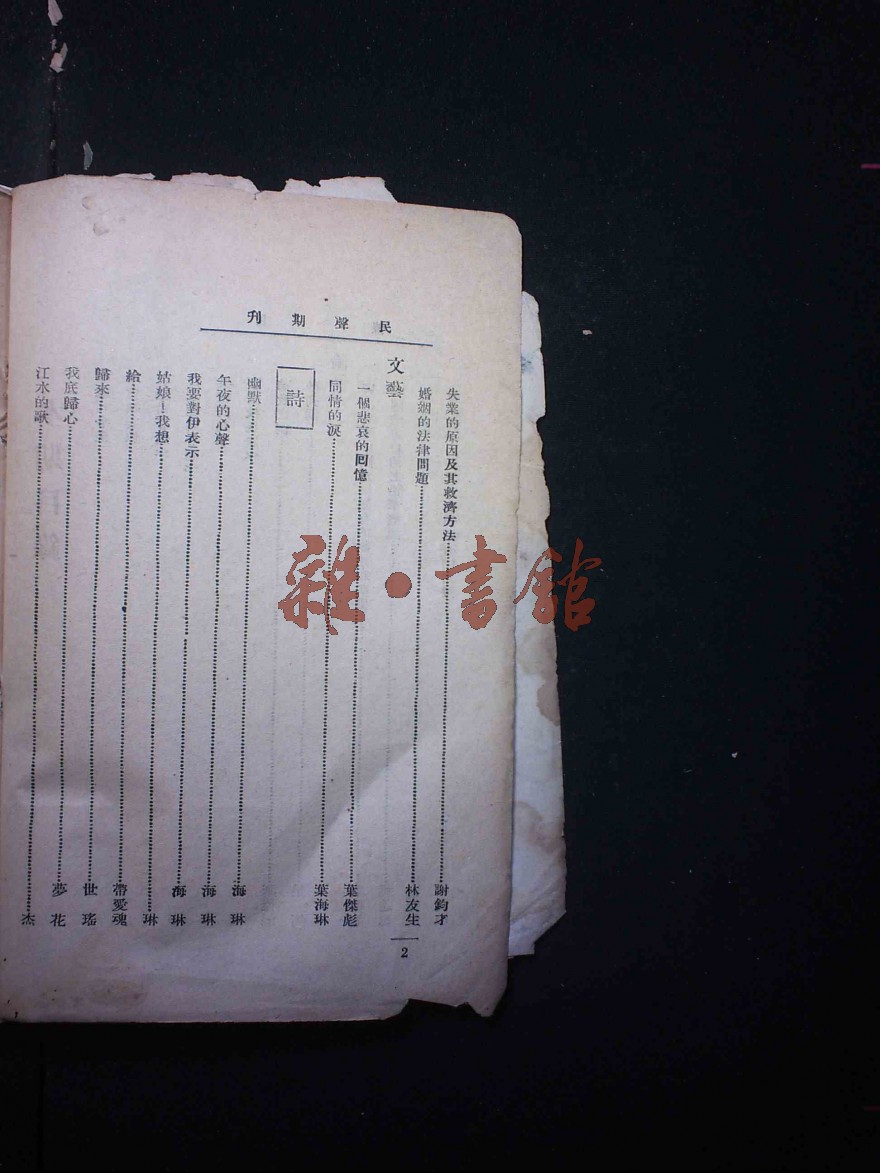 民聲期刊
失業的原因及其救濟方法……謝鈞才
婚姻的法律問題……林友生
文藝
一個悲哀的回憶……葉傑彪
同情的淚……葉海琳
詩
幽默……海琳
午夜的心聲……海琳
我要對伊表示……海琳
姑娘！我想……琳
給……帶愛魂
歸來……世瑤
我底歸心……夢花
江水的歌……杰
2
雜·書館